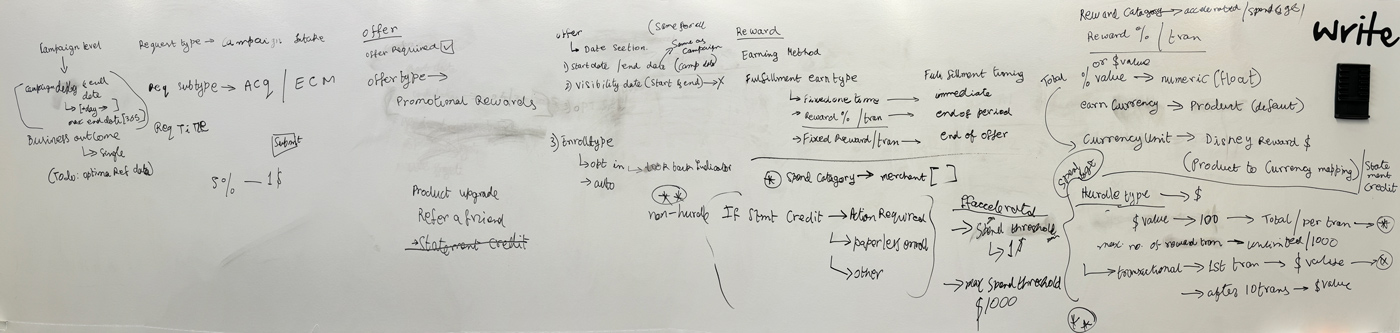 Campaign level
Campaign display & enroll
date
↳ [today → ]
max end date [365]
Business outcome
↳ single
(Todo: optima Ref data)
Request type → Campaign Intake
Req subtype → ACQ / ECM
Req Title
Submit
5% — 1$
offer
offer Required ☑
offertype →
Promotional Rewards
Product upgrade
Refer a friend
→ Statement Credit
offer
↳ Date section
(Same for all
Same as campaign
1) start date / end date (camp date)
2) Visibility date (Start & end) → X
3) Enrolltype
↳ opt in ↳ look back indicator
→ auto
Reward
Earning Method
Fulfillment earn type
↳ Fixed one time → immediate
↳ Reward % / tran → end of period
↳ Fixed Reward/tran → end of offer
Fulfillment timing
* Spend Category → merchant [ ]
**
non-hurdle
If Stmt Credit → Action Required
↳ paperless enroll
↳ other
If accelerated
→ Spend threshold
↳ 1$
→ max Spend threshold
$1000
Reward Category → accelerated / spend & get /
Reward % / tran
or $ value
Total % value → numeric (float)
earn Currency → Product (default)
Currency Unit → Disney Reward $
(Product to Currency mapping) / State ment Credit
Spend & get
Hurdle type → $
$ value → 100 → Total / per tran → *
max no. of reward tran → unlimited / 1000
↳ transactional → 1st tran → $ value → *
→ after 10 trans → $ value
**
write